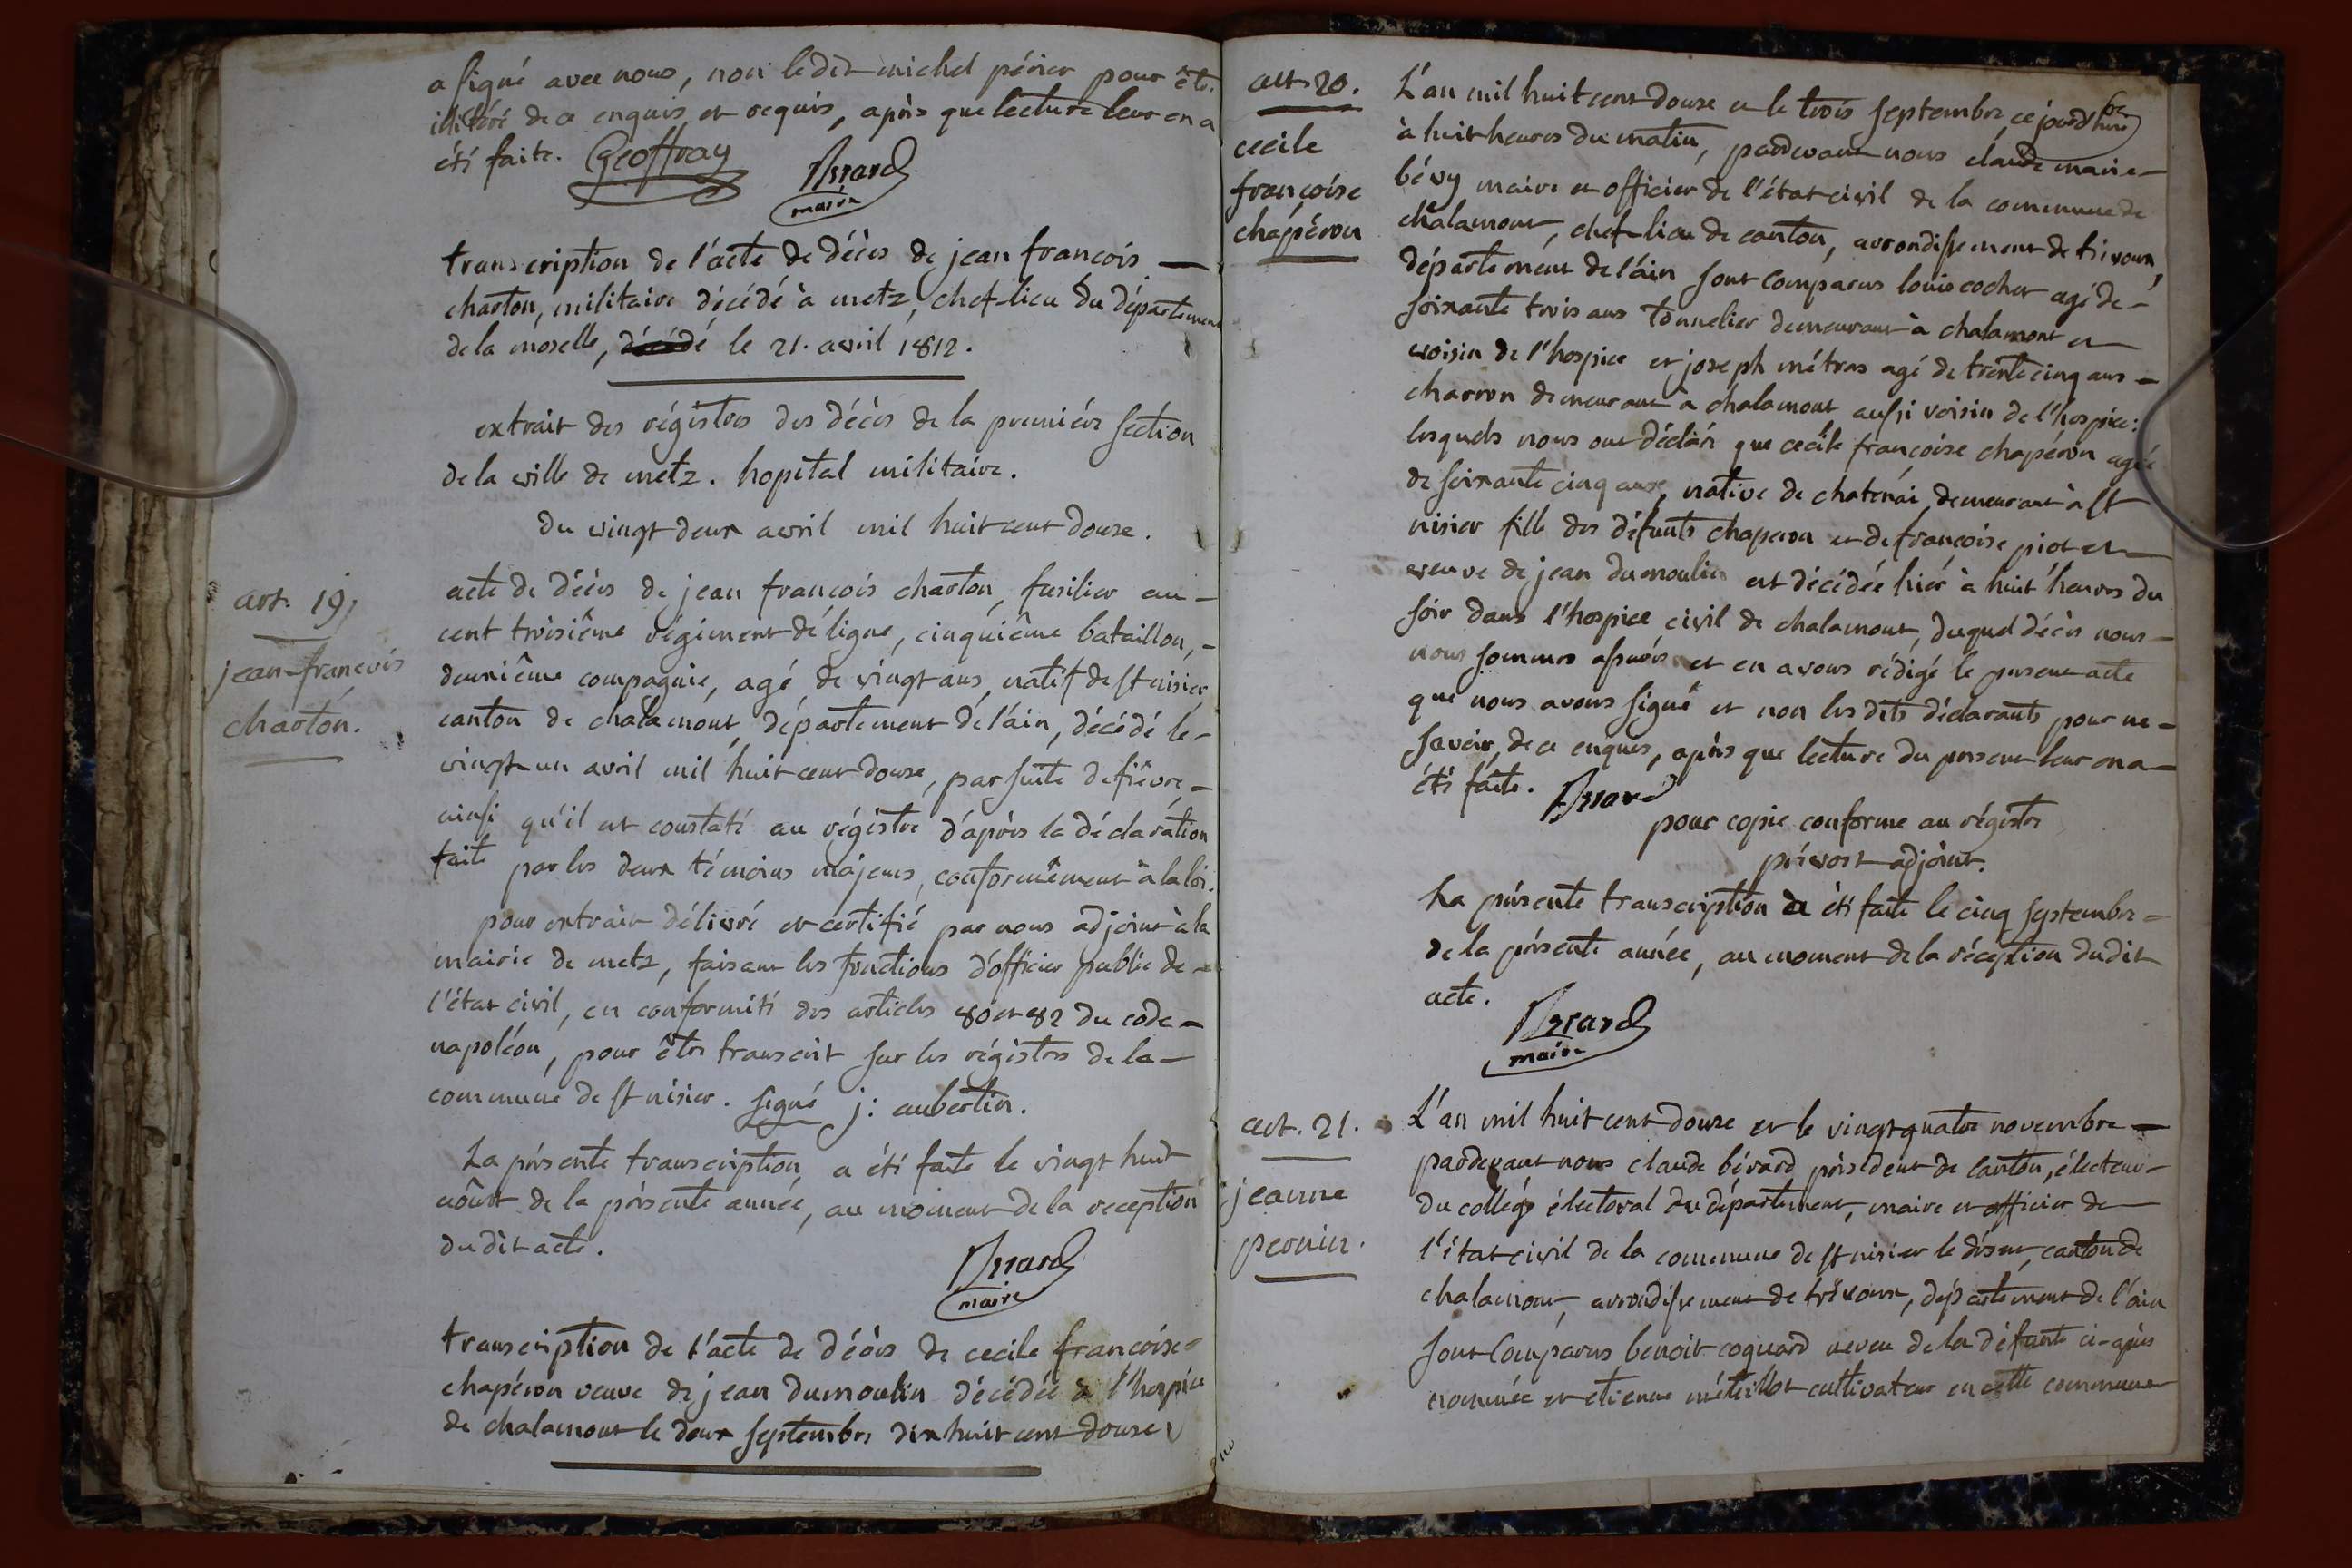 a signé avec nous, non ledit michel périer pour être
illitéré de ce enquis et requis, après que lecture leur en a
été faite. Geoffray Bérard
maire
transcription de l'acte de décès de jean françois
charton, militaire décédé à metz, chef-lieu du département
de la moselle, décédé le 21. avril 1812.
extrait des régistres des décès de la première section
de la ville de metz. hopital militaire.
du vingt deux avril mil huit cent douze.
art. 19,
jean-françois
charton.
acte de décès de jean françois charton, fusilier au
cent troisième régiment de ligne, cinquième bataillon,
deuxième compagnie, agé de vingt ans, natif de st nisier
canton de chalamont, département de l'ain, décédé le
vingt un avril mil huit cent douze, par suite de fièvre
ainsi qu'il est constaté au régistre d'après la déclaration
faite par les deux témoins majeurs, conformément à la loi.
pour extrait délivré et certifié par nous adjoint à la
mairie de metz, faisant les fonctions d'officier public de
l'état civil, en conformité des articles 80 et 82 du code
napoléon, pour être transcrit sur les régistres de la
commune de st nisier. signé j: aubertin.
La présente transcription a été faite le vingt huit
août de la présente année, au moment de la reception
du dit acte.
Bérard
maire
transcription de l'acte de décès de cecile françoise
chapéron veuve de jean dumoulin décédée à l'hospice
de chalamont le deux septembre dix huit cent douze
art. 20.
cecile
françoise
chapéron
L'an mil huit cent douze et le trois septembre, ce jourd'hui
à huit heures du matin, pardevant nous claude marie
bévy maire et officier de l'état civil de la commune de
chalamont, chef-lieu de canton, arrondissement de trévoux,
département de l'ain sont comparus louis cochet agé de
soixante trois ans tonnelier demeurant à chalamont et
voisin de l'hospice et joseph métras agé de trente cinq ans
charron demeurant à chalamont aussi voisin de l'hospice:
lesquels nous ont déclaré que cecile françoise chapéron agée
de soixante cinq ans, native de chatenai, demeurant à st
nisier fille des défunts chaperon et de françoise piot et
veuve de jean dumoulin est décédée hier à huit heures du
soir dans l'hospice civil de chalamont, duquel décès nous
nous sommes assurés et en avons rédigé le present acte
que nous avons signé et non les dits déclarants pour ne
savoir, de ce enquis, après que lecture du present leur en a
été faite. Bérard
pour copie conforme au régistre
prévost adjoint.
La présente transcription a été faite le cinq septembre
de la présente année, au moment de la réception dudit
acte.
Bérard
maire
art. 21.
jeanne
pernin.
L'an mil huit cent douze et le vingt quatre novembre
pardevant nous claude bérard président de canton, électeur
du collège électoral du département, maire et officier de
l'état civil de la commune de st nisier le désert, canton de
chalamont, arrondissement de trévoux, département de l'ain
sont comparus benoit coquard neveu de la défunte ci-après
nommée et etienne métillot cultivateur en cette commune